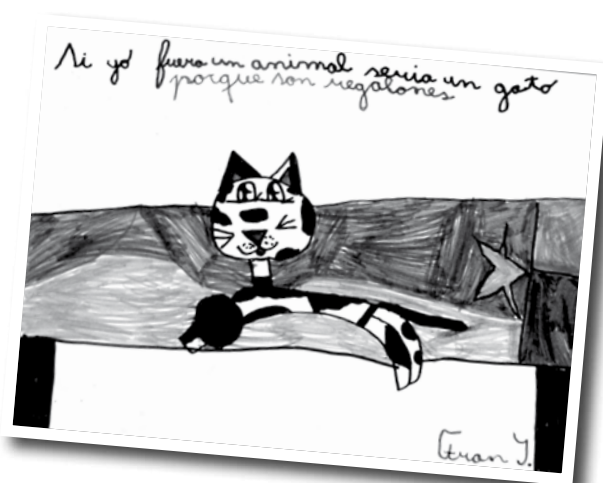 Si yo fuera un animal seria un gato
porque son regalones
Fran Y.